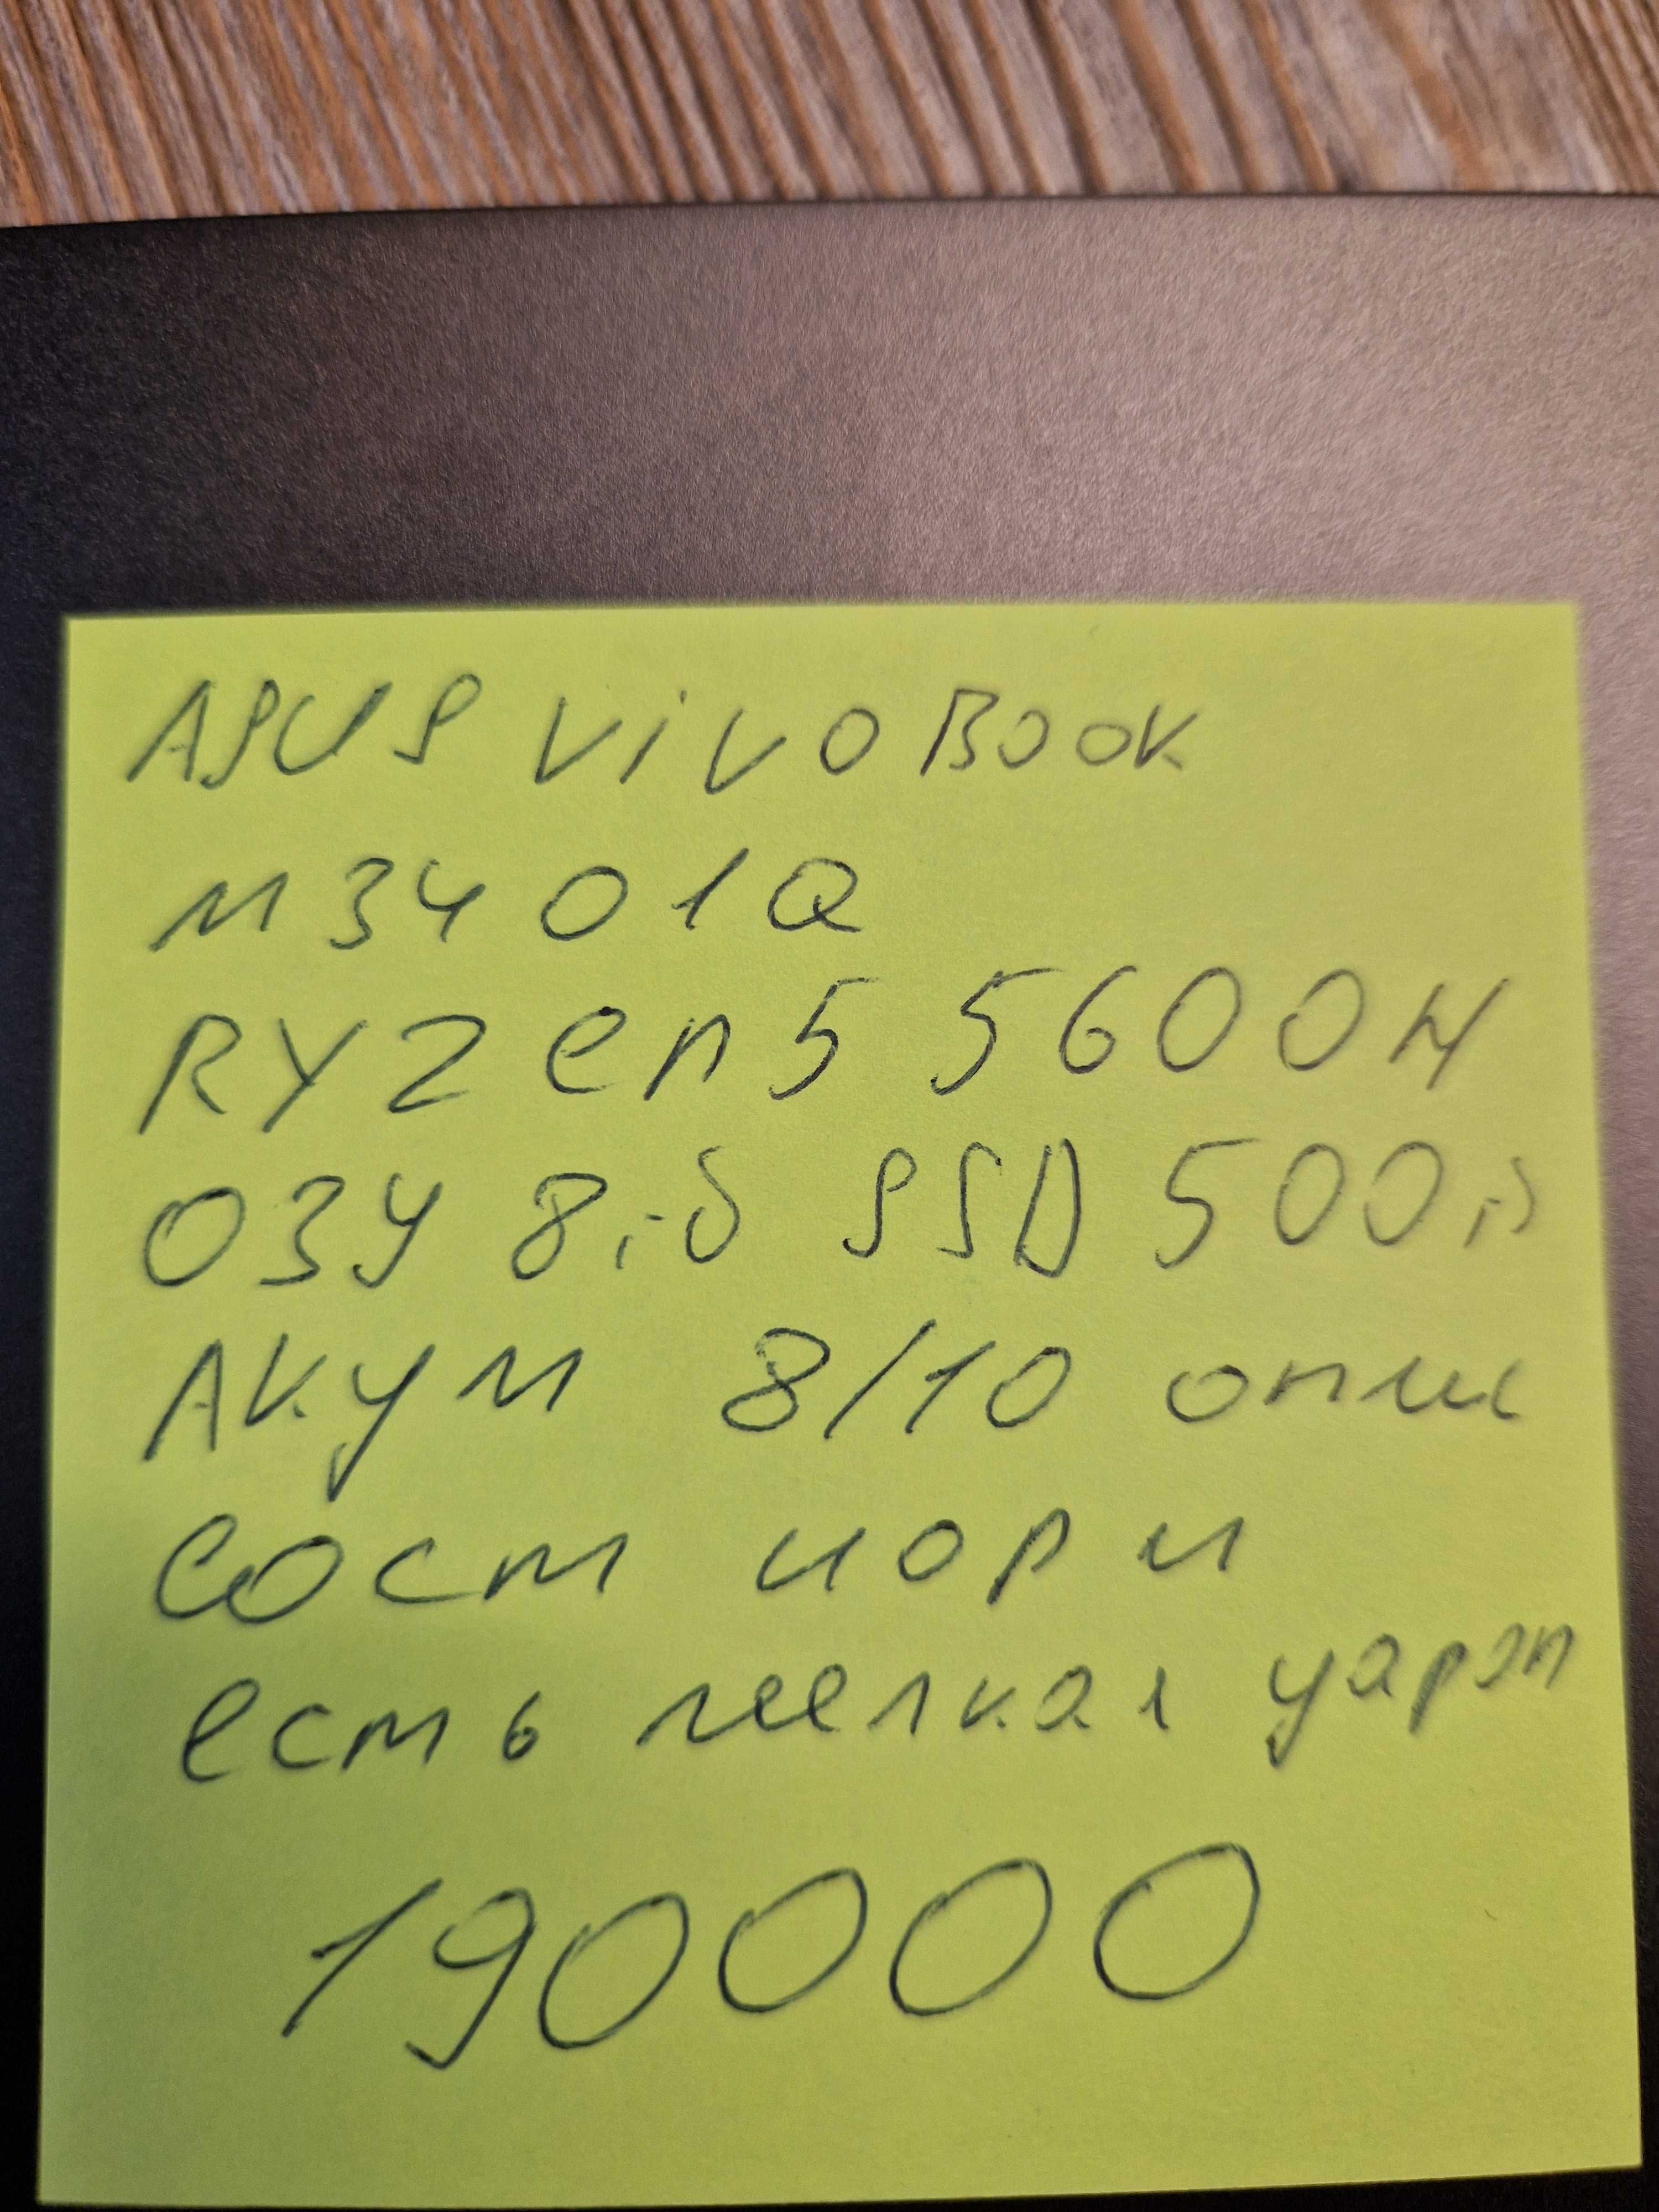 ASUS VivoBook
M3401Q
RYZen 5 5600H
ОЗУ 8гб SSD 500гб
АКУМ 8/10 отлич
Сост норм
есть мелкая царап
190000